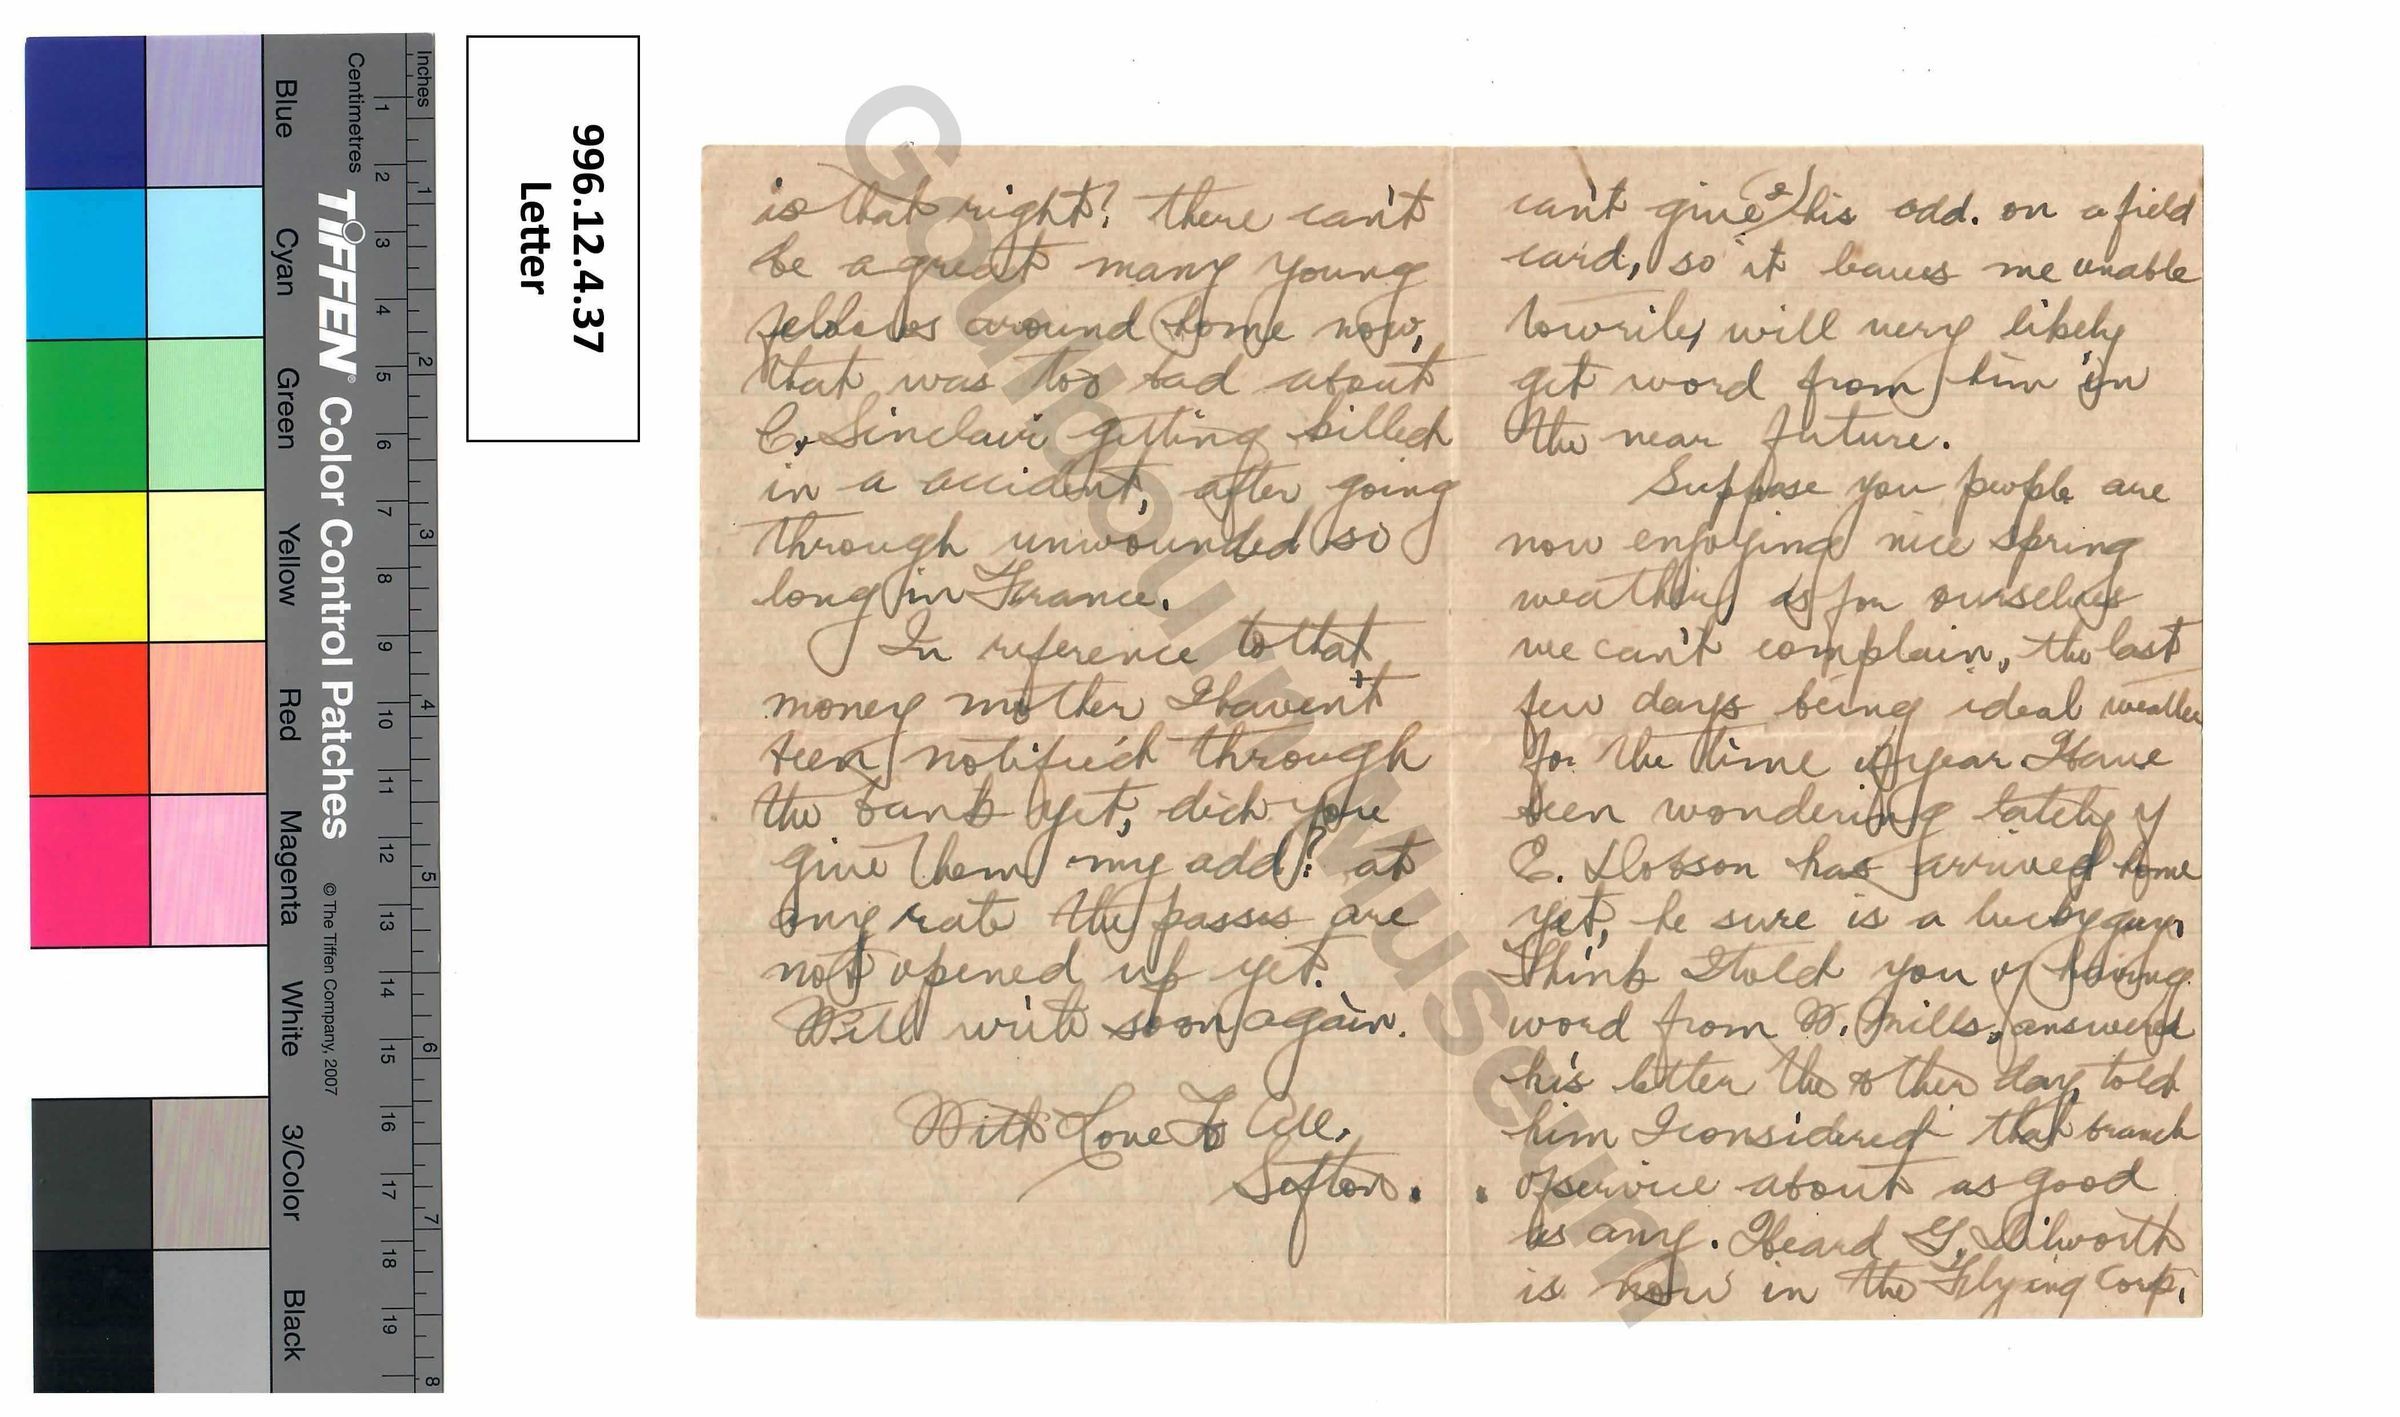 Inches
Centimetres
1 2 3 4 5 6 7 8 9 10 11 12 13 14 15 16 17 18 19
1 2 3 4 5 6 7 8
TIFFEN® Color Control Patches
© The Tiffen Company, 2007
Blue
Cyan
Green
Yellow
Red
Magenta
White
3/Color
Black
996.12.4.37
Letter
can't give (2) his add. on a field
card, so it leaves me unable
to write, will very likely
get word from him in
the near future.
Suppose you people are
now enjoying nice spring
weather, as for ourselves
we can't complain, the last
few days being ideal weather
for the time of year Have
been wondering lately if
E. Dobson has arrived home
yet, he sure is a lucky guy.
Think I told you of having
word from W. Mills, answered
his letter the other day, told
him I considered that branch
of service about as good
as any. Heard G. Dilworth
is now in the Flying Corp,
is that right? there can't
be a great many young
fellows around home now,
that was too bad about
C. Sinclair getting killed
in a accident, after going
through unwounded so
long in France.
In reference to that
money mother I haven't
been notified through
the bank yet, did you
give them my add? at
any rate the passes are
not opened up yet.
Will write soon again.
With Love To All.
Sefton.
Goulbourn Museum